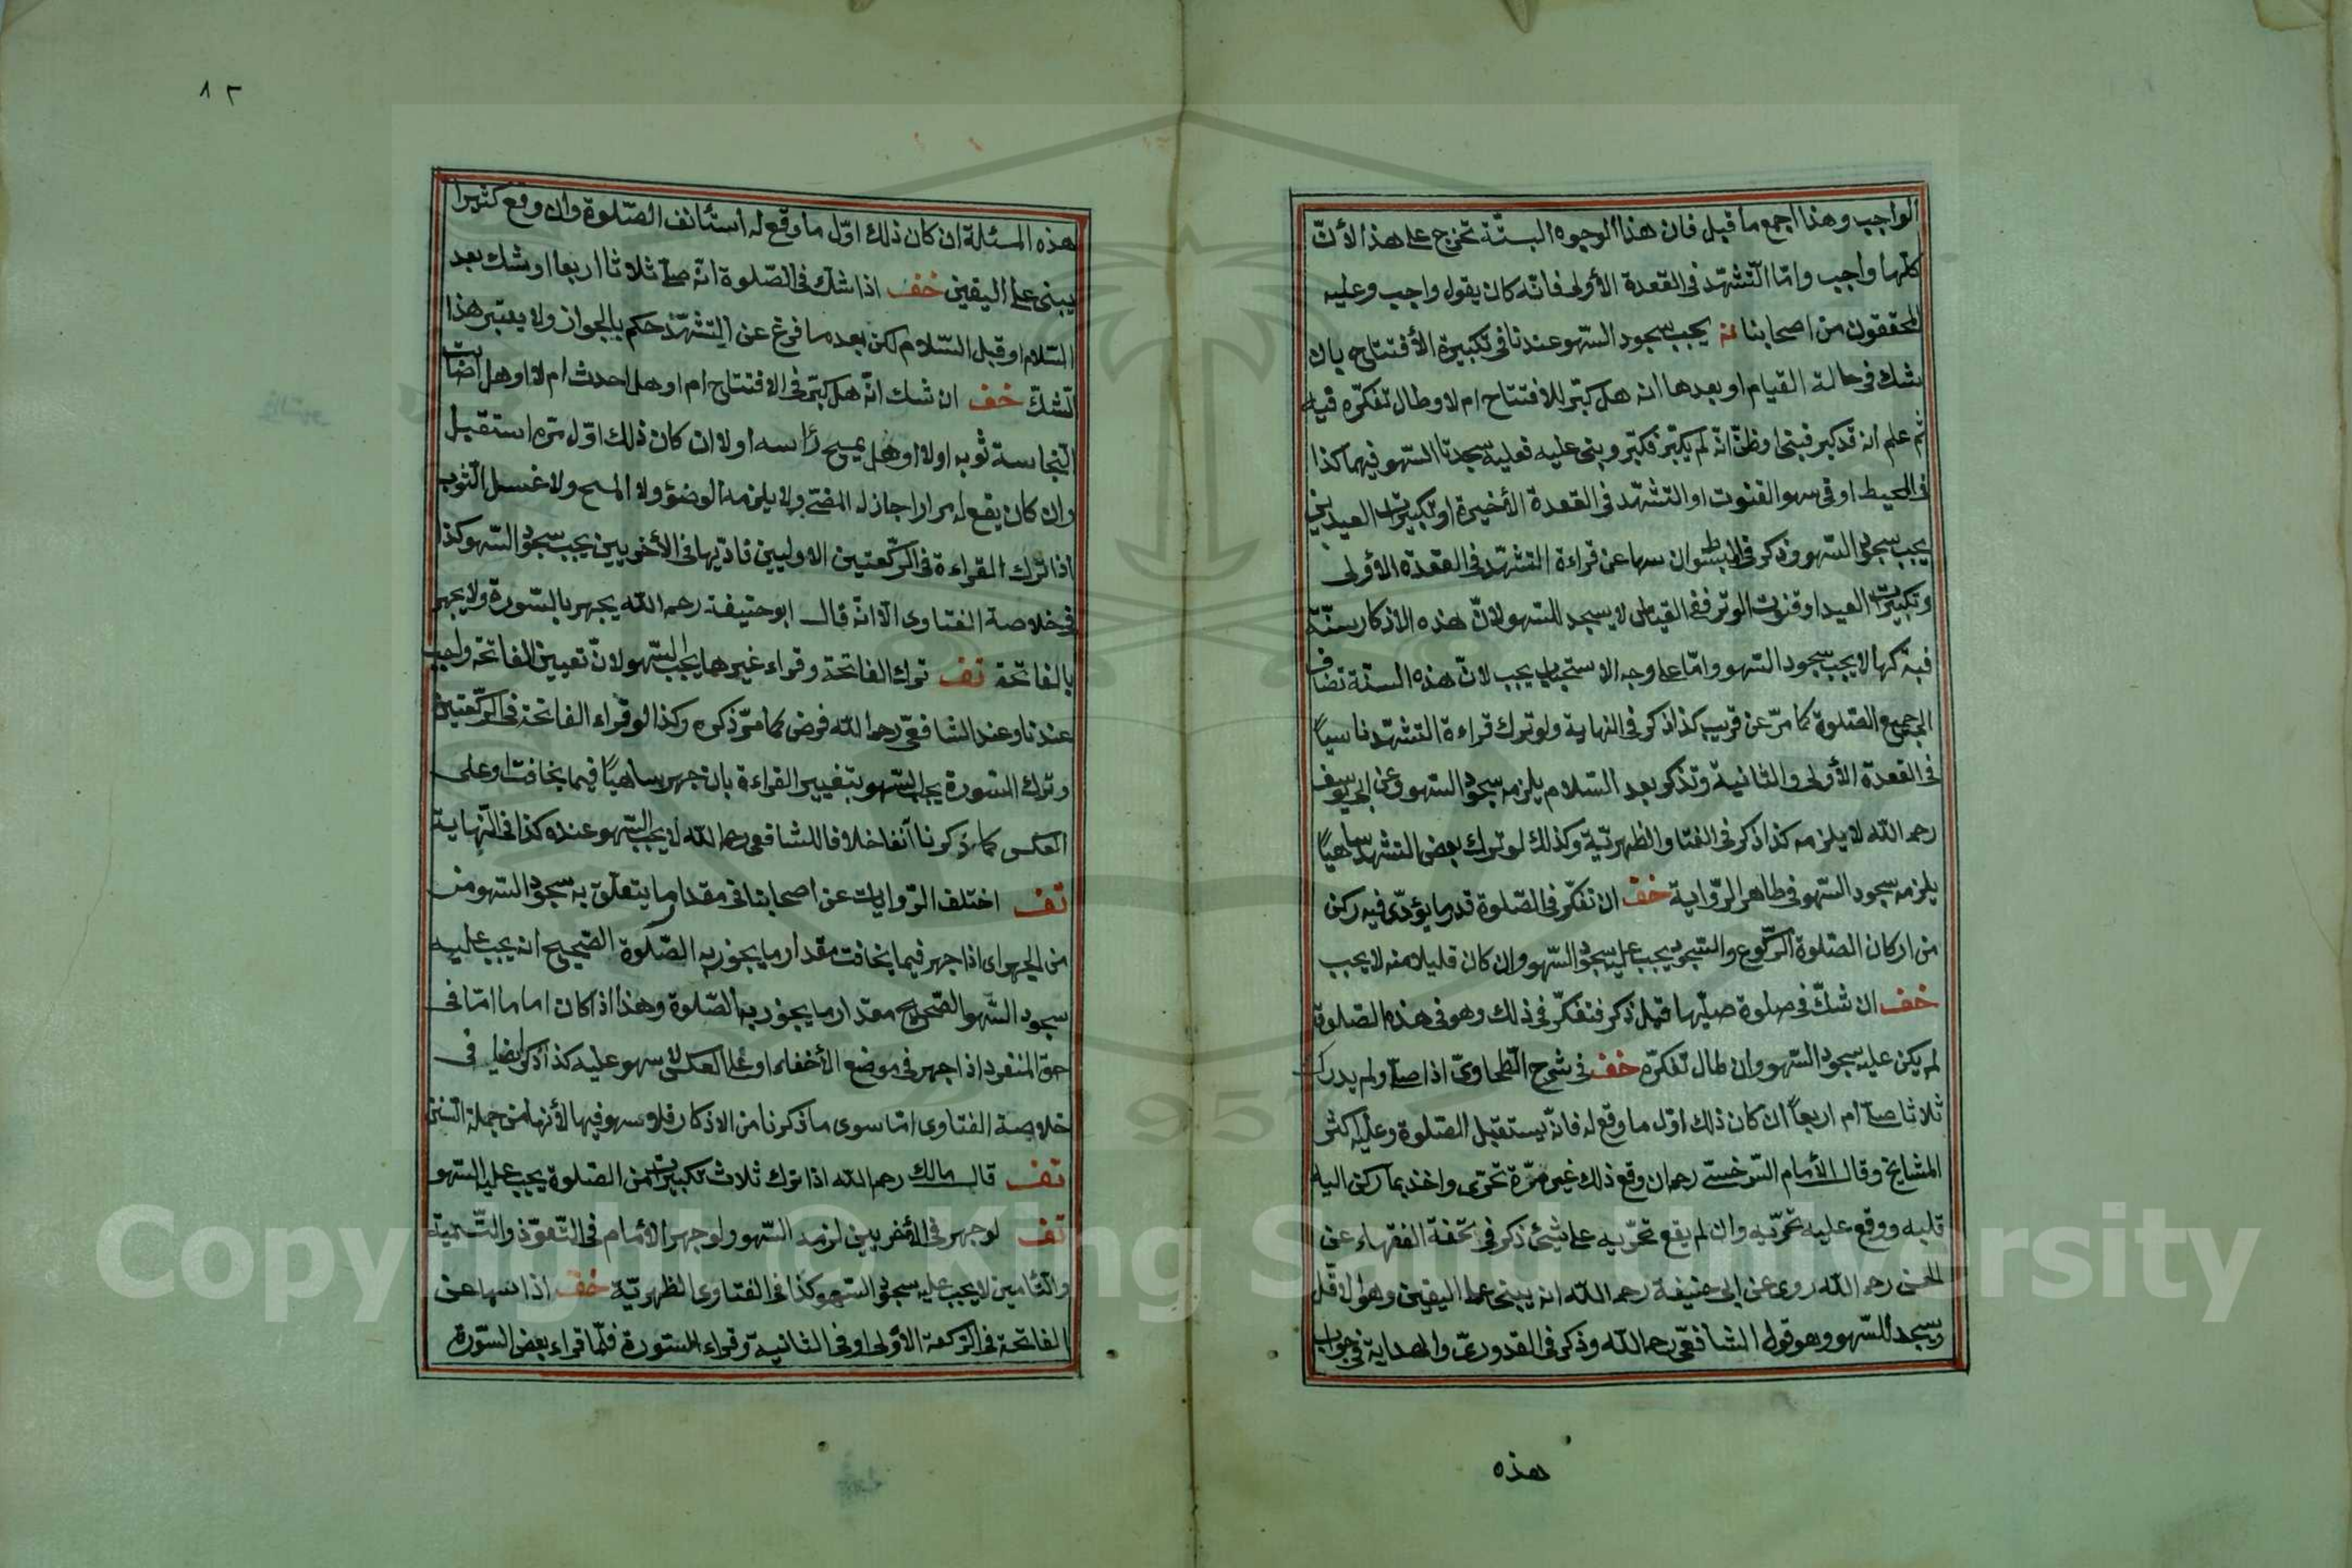 الواجب وهذا اجمع ما قيل فان هذا الوجوه الستّة تخرج على هذا لأنّ
كلّها واجب وامّا التّشهّد فى القعدة الأولى فانّه كان يقول واجب وعليه
المحققون من اصحابنا يجب سجود السّهو عندنا فى تكبيرة الأفتتاح بان
يشك فى حالة القيام او بعدها انه هل كبّر للافتتاح ام لا وطال تفكّره فيه
ثم علم انه قد كبر فبنى او ظنّ انّه لم يكبّر فكبّر وبنى عليه فعليه سجدتا السّهو فيهما كذا
فى المحيط او فى سهو القنوت او التشهّد فى القعدة الأخيرة او تكبيرات العيدين
يجب سجود السّهو وذكر فى المبسوط ان سها عن قراءة التشهّد فى القعدة الأولى
وتكبيرات العيد او قنوت الوتر ففى القياس لا يسجد للسّهو لانّ هذه الاذكار سنّة
فبتركها لا يجب سجود السّهو وامّا على وجه الاستحباب يجب لانّ هذه السنّة تضاف
الى جميع الصّلوة كما مرّ عن قريب كذا ذكر فى النهاية ولو ترك قراءة التشهّد ناسياً
فى القعدة الأولى والثانية وتذكر بعد السّلام يلزمه سجود السّهو وعن ابى يوسف
رحمه اللّه لا يلزمه كذا ذكر فى الفتاوى الظهريّة وكذلك لو ترك بعض التشهد ساهياً
يلزمه سجود السّهو فى ظاهر الرّواية خف ان تفكّر فى الصّلوة قدر ما يؤدّى فيه ركن
من اركان الصّلوة الرّكوع والسّجود يجب عليه سجود السّهو وان كان قليلا منه لا يجب
خف ان شكّ فى صلوة صلّيها قبل ذكر فتفكّر فى ذلك وهو فى هذه الصّلوة
لم يكن عليه سجود السّهو وان طال تفكّره خف فى شرح الطّحاوىّ اذا صلّى ولم يدرك
ثلاثا صلّى ام اربعاً ان كان ذلك اوّل ما وقع له فانّه يستقبل الصّلوة وعليه اكثر
المشايخ وقال الأمام السّرخسىّ رحمه ان وقع ذلك غير مرّة تحرّى واخذ بما ركن اليه
قلبه ووقع عليه تحرّيه وان لم يقع تحرّيه على شيئ ذكر فى تحفة الفقهاء عن
الحسن رحمه اللّه روى عن ابى حنيفة رحمه اللّه انه يبنى على اليقين وهو الاقلّ
ويسجد للسّهو وهو قول الشافعىّ رحمه اللّه وذكر فى القدورىّ والهداية فى جواب
هذه
٨٢
هذه المسئلة ان كان ذلك اوّل ما وقع له استأنف الصّلوة وان وقع كثيرا
يبنى على اليقين خف اذا شك فى الصّلوة انّه صلّى ثلاثا اربعا او شك بعد
السّلام او قبل السّلام لكن بعد ما فرغ عن التّشهّد حكم بالجواز ولا يعتبر هذا
الشكّ خف ان شك انّه هل كبّر فى الافتتاح ام او هل احدث ام لا او هل اصابت
النّجاسة ثوبه او لا او هل يمسح رأسه او لا ان كان ذلك اوّل مرّه استقبل
وان كان يقع له مرارا جاز له المضىّ ولا يلزمه الوضؤ ولا المسح ولا غسل الثّوب
اذا ترك القراءة فى الرّكعتين الاوليين تاديها فى الأخريين يجب سجود السّهو كذا
فى خلاصة الفتاوى الاّ انّه قال ابو حنيفة رحمه اللّه يجهر بالسّورة ولا يجهر
بالفاتحة تف ترك الفاتحة وقراء غيرها يجب السّهو لانّ تعيين الفاتحة واجب
عندنا وعند الشافعىّ رحمه اللّه فرض كما مرّ ذكره وكذا لو قراء الفاتحة فى الرّكعتين
وترك السّورة يجب السّهو بتغيير القراءة بان جهر ساهياً فيما يخافت او على
العكس كما ذكرنا آنفا خلافا للشافعى رحمه اللّه لا يجب السّهو عنده كذا فى النّهاية
تف اختلف الرّوايات عن اصحابنا فى مقدار ما يتعلّق به سجود السّهو من
من الجهر اى اذا جهر فيما يخافت مقدار ما يجوز به الصّلوة الصّحيح انه يجب عليه
سجود السّهو الصّحيح مقدار ما يجوز به الصّلوة وهذا اذا كان اماما امّا فى
حق المنفرد اذا جهر فى موضع الأخفاء او على العكس لا سهو عليه كذا ذكر ايضا فى
خلاصة الفتاوى امّا سوى ما ذكرنا من الاذكار فلا سهو فيها لأنها من جملة السّنن
تف قال مالك رحمه اللّه اذا ترك ثلاث تكبيرات من الصّلوة يجب عليه السّهو
تف لو جهر فى الأخريين لزمه السّهو ولو جهر الأمام فى التّعوّذ والتّسمية
والتّأمين لا يجب عليه سجود السّهو كذا فى الفتاوى الظهريّة خف اذا سها عن
الفاتحة فى الرّكعة الأولى او فى الثانية وقراء السّورة فلمّا قراء بعض السّورة
Copyright © King Saud University
1957